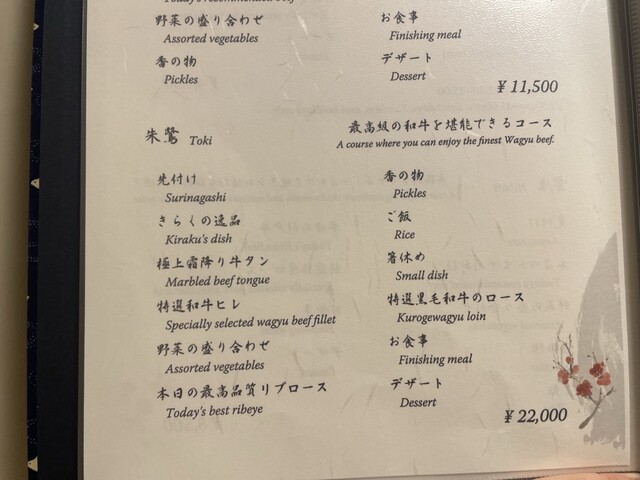 Today's recommended beef
野菜の盛り合わせ
Assorted vegetables
香の物
Pickles
お食事
Finishing meal
デザート
Dessert
¥ 11,500
朱鷺 Toki
最高級の和牛を堪能できるコース
A course where you can enjoy the finest Wagyu beef.
先付け
Surinagashi
きらくの逸品
Kiraku's dish
極上霜降り牛タン
Marbled beef tongue
特選和牛ヒレ
Specially selected wagyu beef fillet
野菜の盛り合わせ
Assorted vegetables
本日の最高品質リブロース
Today's best ribeye
香の物
Pickles
ご飯
Rice
箸休め
Small dish
特選黒毛和牛のロース
Kurogewagyu loin
お食事
Finishing meal
デザート
Dessert
¥ 22,000